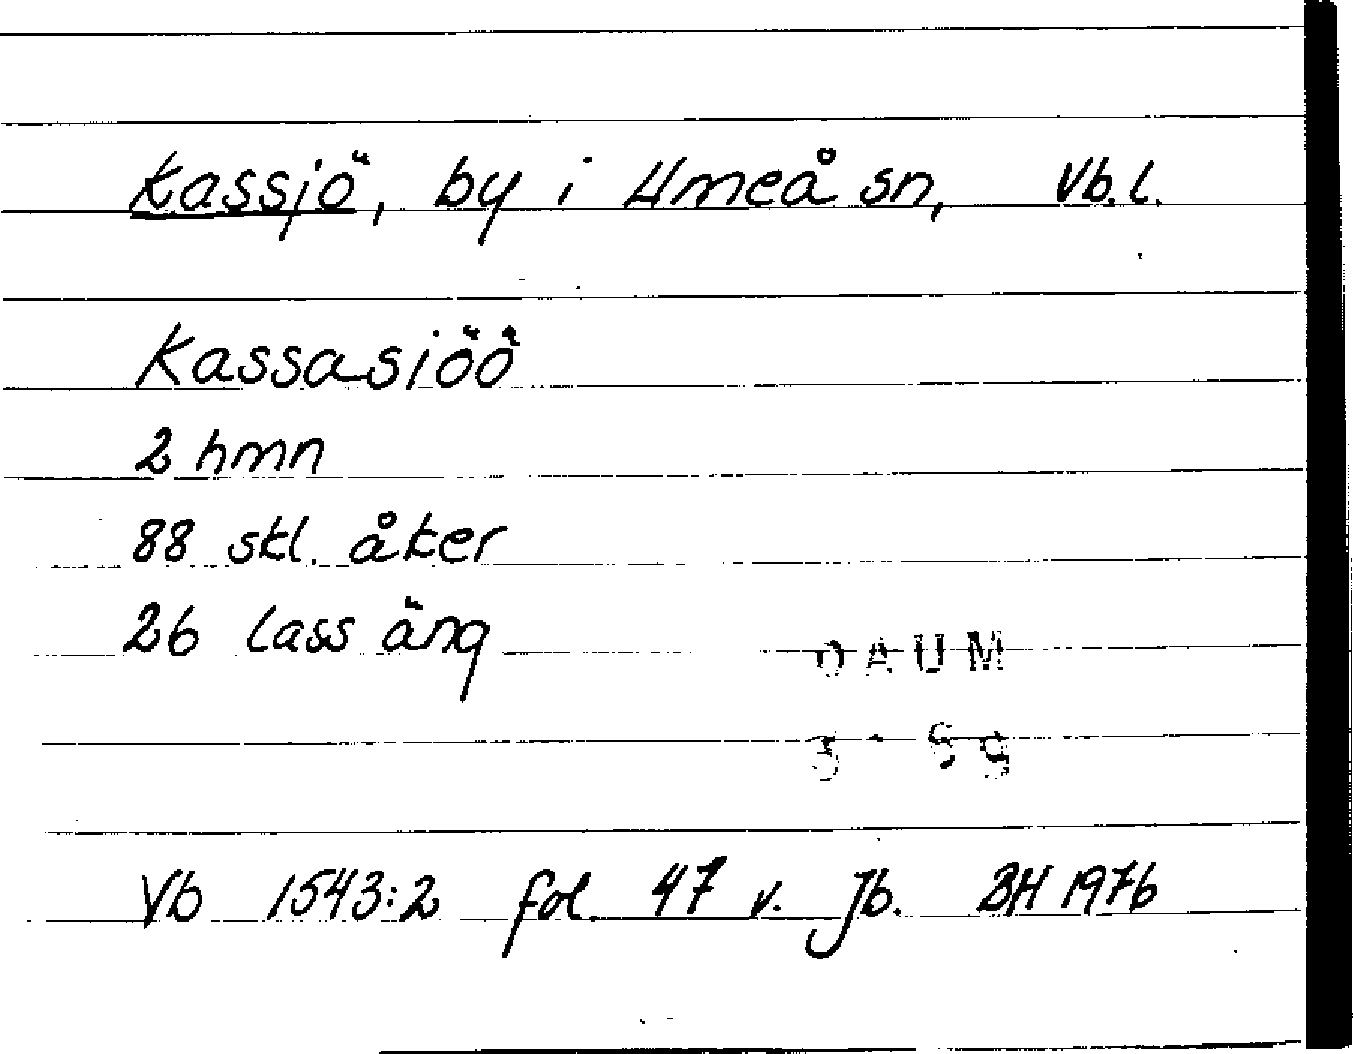 Kassjö, by i Umeå sn, Vb.l.
Kassasiöö
2 hmn
88 skl. åker
26 lass äng
DAUM
Vb 1543:2 fol. 47 v. Jb. BH 1976